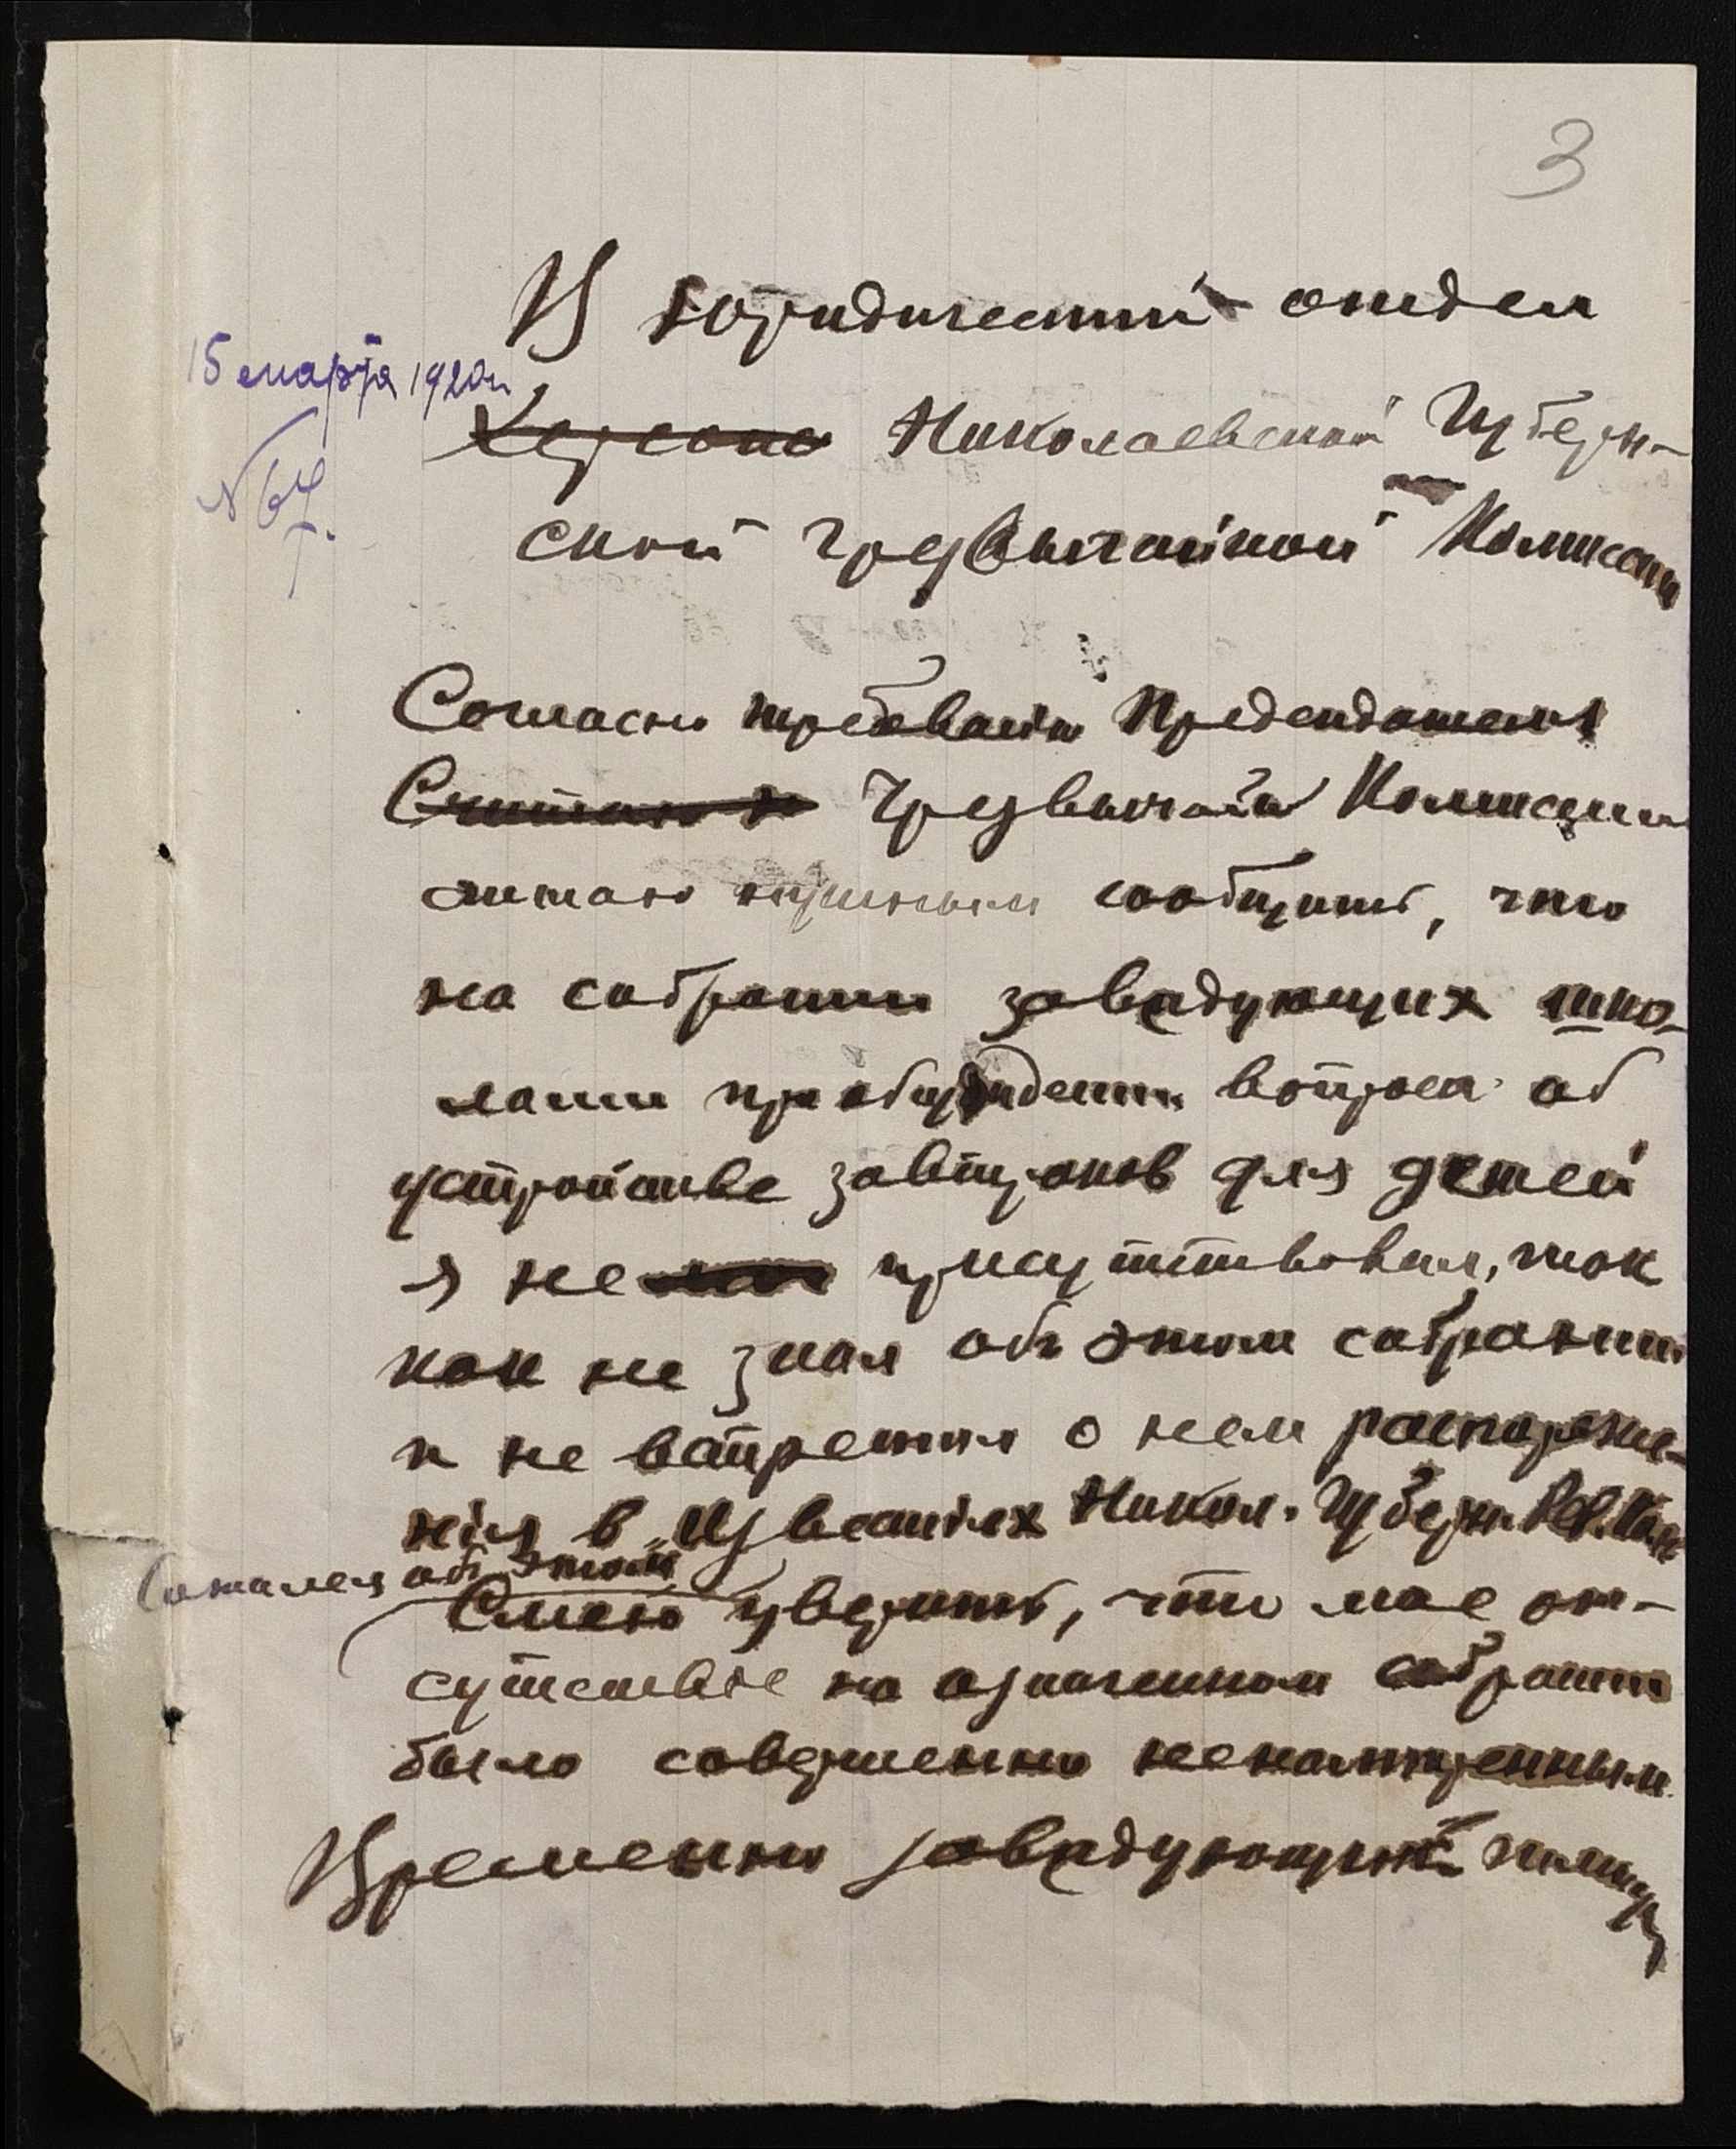 3
В юридический отдел
15 марта 1920 г.
Херсонс Николаевской Губерн-
№ 67.
ской Чрезвычайной Комиссии
Согласно требованія Председателя
Считаю Чрезвычайн Комиссии
считаю нужным сообщить, что
на собрании заведующих шко-
лами при обсуждении вопроса об
устройстве завтраков для детей
я не присутствовал, так
как не знал объ этом собрании
и не встретил о нем распоряже-
нія в „Известіях Никол. Губерн. Рев. Ком
Сожалея объ этом
Смею уверить, что мое от-
сутствие на означенном собрании
было совершенно ненамеренным.
Временно заведующий